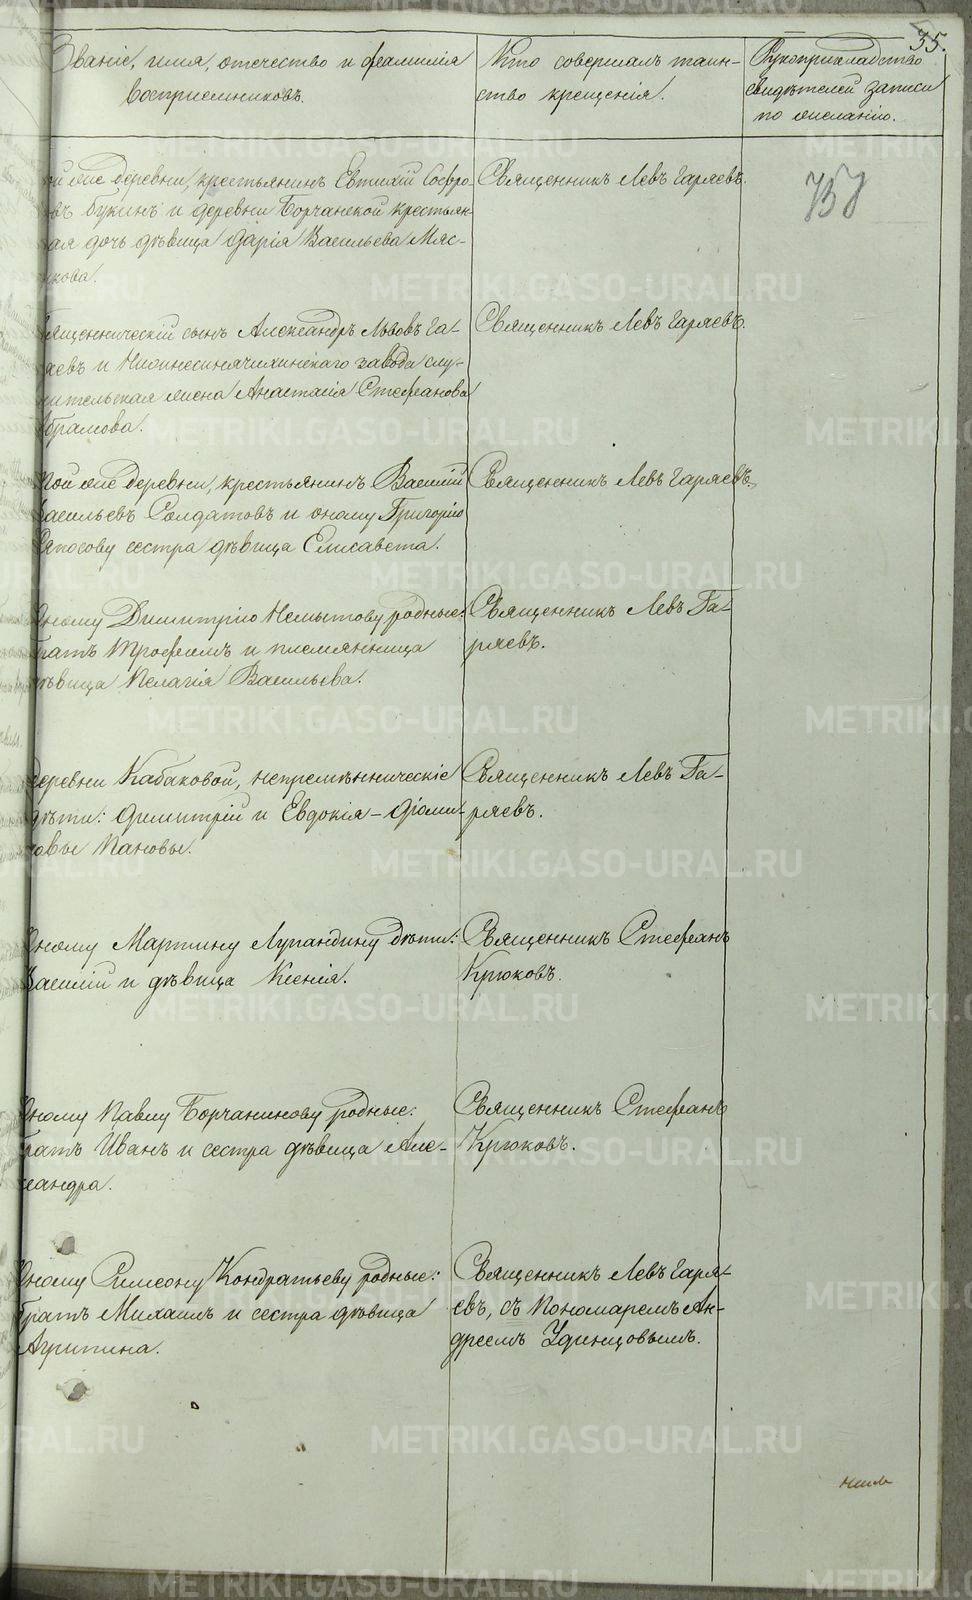 35.
Званіе, имя, отчество и фамилія
воспріемниковъ.
Кто совершалъ таин-
ство крещенія.
Рукоприкладство
свидѣтелей записи
по желанію.
ой же деревни, крестьянинъ Евтихій Софро-
въ Букинъ и деревни Борчанской крестьян-
ая дочь дѣвица Дарія Васильева Мяс-
кова.
Священникъ Левъ Гаряевъ.
ященническій сынъ Александръ Львовъ Га-
аевъ и Нижнесинячихинскаго завода слу-
жительская жена Анастасія Стефанова
Абрамова.
Священникъ Левъ Гаряевъ.
Той же деревни, крестьянинъ Василій
Васильевъ Солдатовъ и оному Григорію
сестра дѣвица Елисавета.
Священникъ Левъ Гаряевъ.
Оному Димитрію Немытову родные:
братъ Трофимъ и племянница
дѣвица Пелагія Васильева.
Священникъ Левъ Га-
ряевъ.
Деревни Кабаковой, непремѣнническіе
дѣти: Димитрій и Евдокія – Ѳоми-
новы Пановы.
Священникъ Левъ Га-
ряевъ.
Оному Мартину Лупандину дѣти:
Василій и дѣвица Ксенія.
Священникъ Стефанъ
Крюковъ.
Оному Павлу Борчанинову родные:
братъ Иванъ и сестра дѣвица Але-
ксандра.
Священникъ Стефанъ
Крюковъ.
Оному Симеону Кондратьеву родные:
братъ Михаилъ и сестра дѣвица
Агрипина.
Священникъ Левъ Гаря-
евъ, съ Пономаремъ Ан-
дреемъ Удинцовымъ.
METRIKI.GASO-URAL.RU